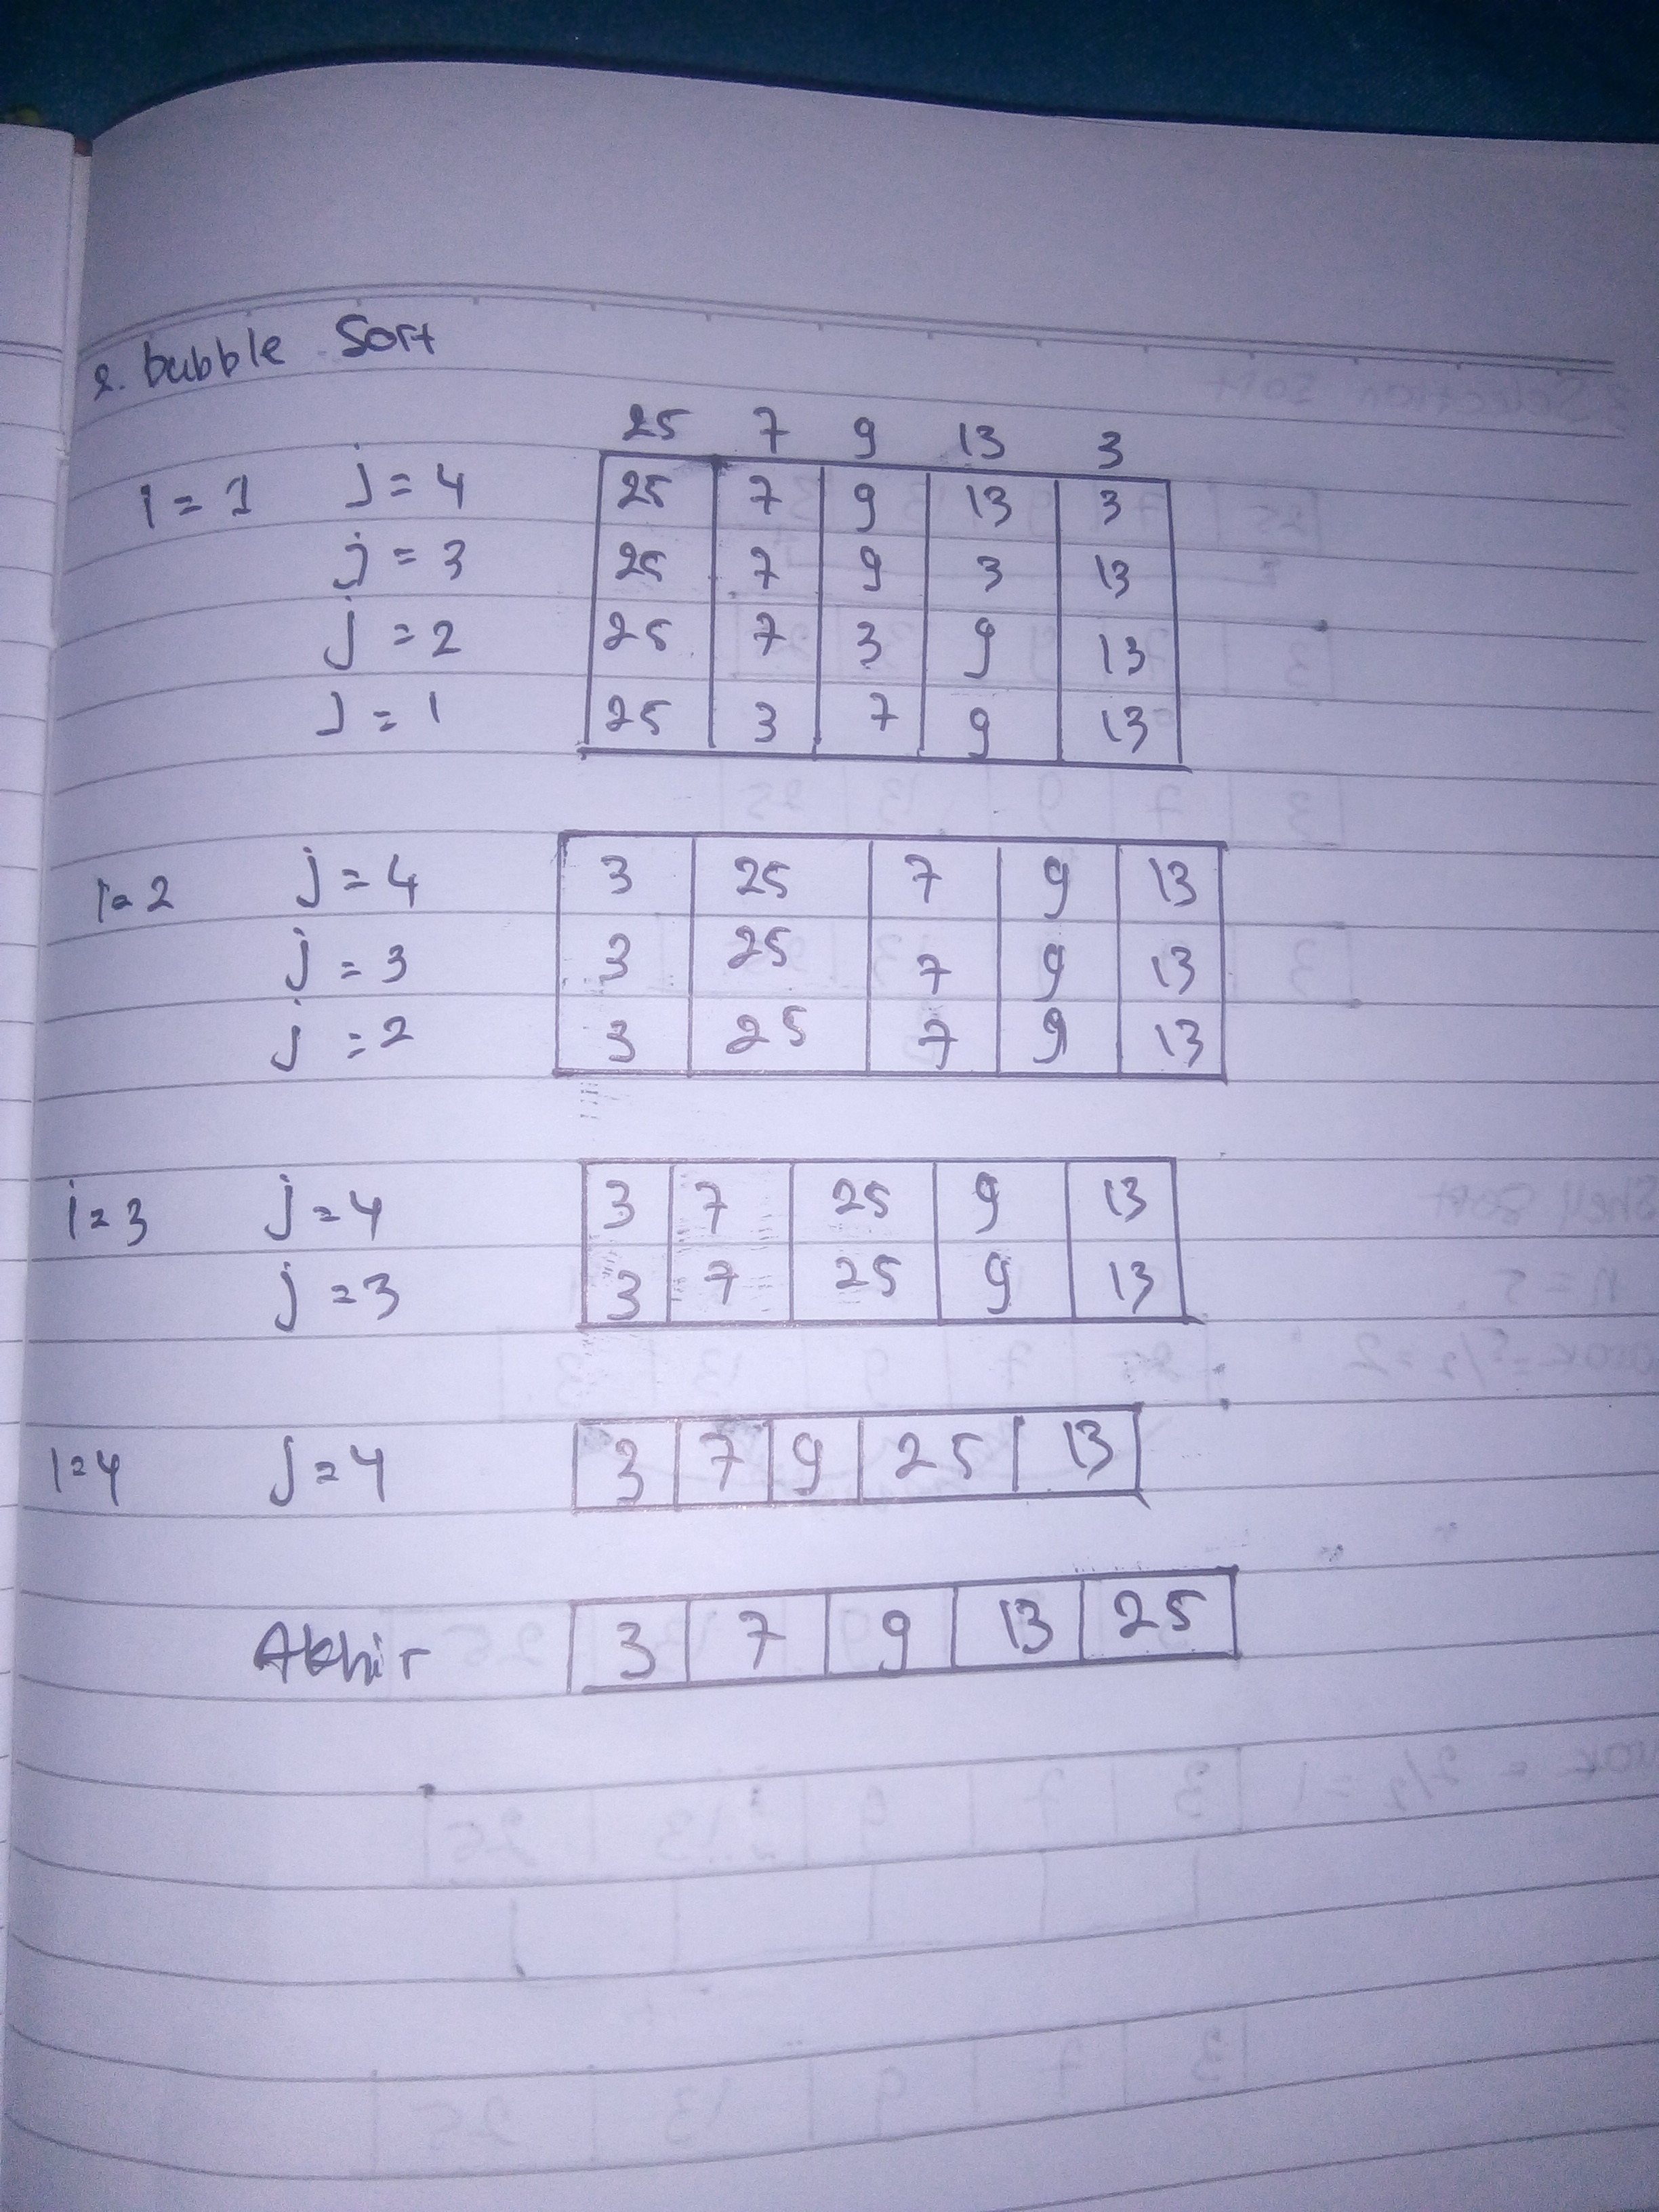 2. bubble Sort
25 7 9 13 3
i = 1 j = 4 25 7 9 13 3
j = 3 25 7 9 3 13
j = 2 25 7 3 9 13
J = 1 25 3 7 9 13
i = 2 j = 4 3 25 7 9 13
j = 3 3 25 7 9 13
j = 2 3 25 7 9 13
i = 3 j = 4 3 7 25 9 13
j = 3 3 7 25 9 13
i = 4 j = 4 3 7 9 25 13
Akhir 3 7 9 13 25